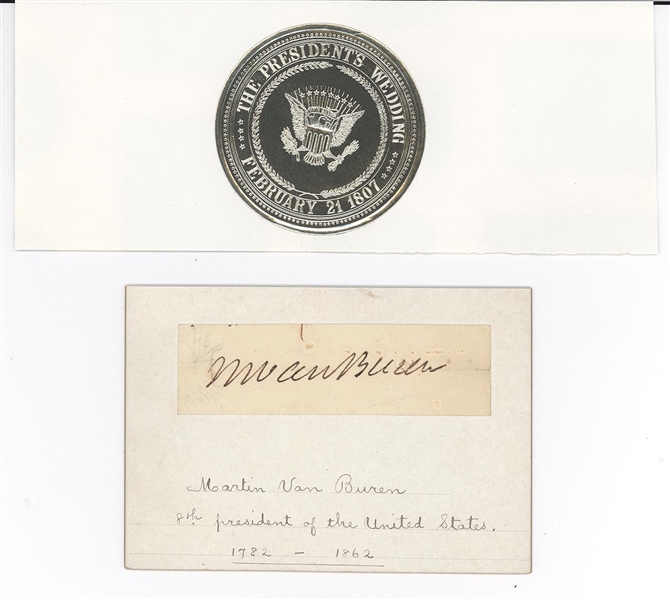 THE PRESIDENT'S WEDDING
FEBRUARY 21 1807
MVan Buren
Martin Van Buren
8th president of the United States.
1782 – 1862